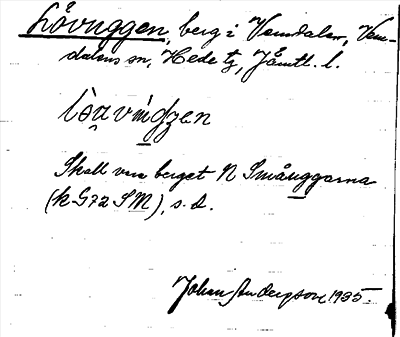 Lövuggen, berg i Vemdalen, Vem-
dalens sn, Hede tg, Jämtl. l.
Skall vara berget N Småuggarna
(k G72 SM), s. d.
Johan Anderzson 1935.